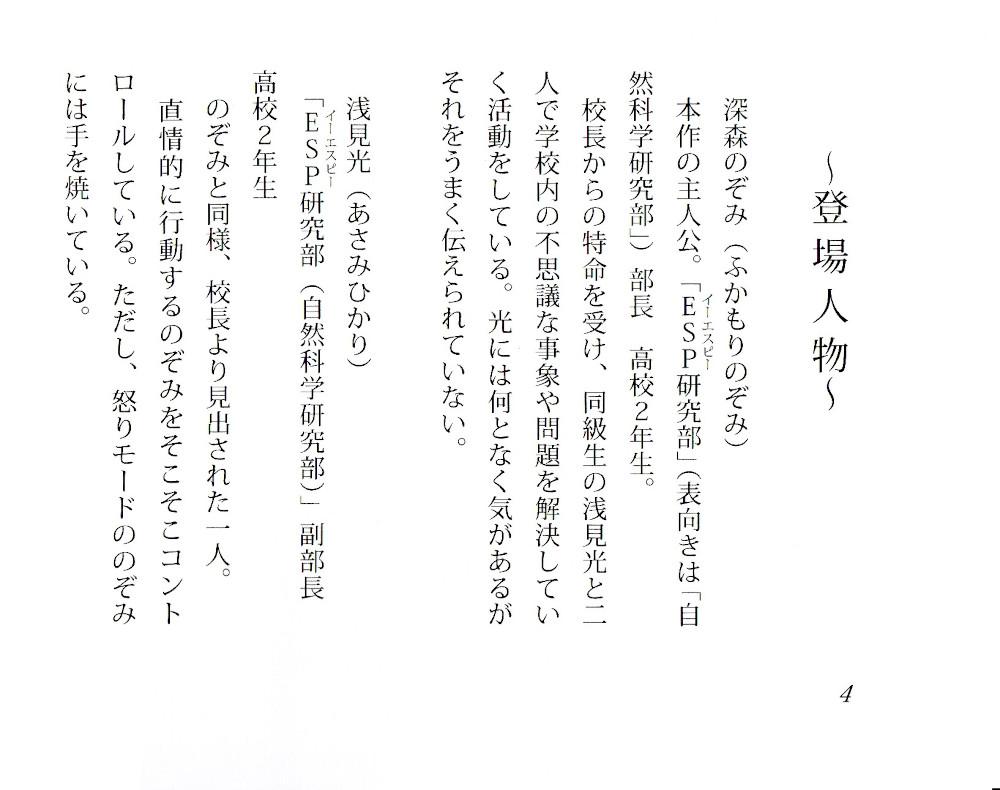 ～登場人物～
深森のぞみ（ふかもりのぞみ）
本作の主人公。「ESP研究部」（表向きは「自
イーエスピー
然科学研究部」）部長　高校２年生。
校長からの特命を受け、同級生の浅見光と二
人で学校内の不思議な事象や問題を解決してい
く活動をしている。光には何となく気があるが
それをうまく伝えられていない。
浅見光（あさみひかり）
「ESP研究部（自然科学研究部）」副部長
イーエスピー
高校２年生
のぞみと同様、校長より見出された一人。
直情的に行動するのぞみをそこそこコント
ロールしている。ただし、怒りモードののぞみ
には手を焼いている。
4